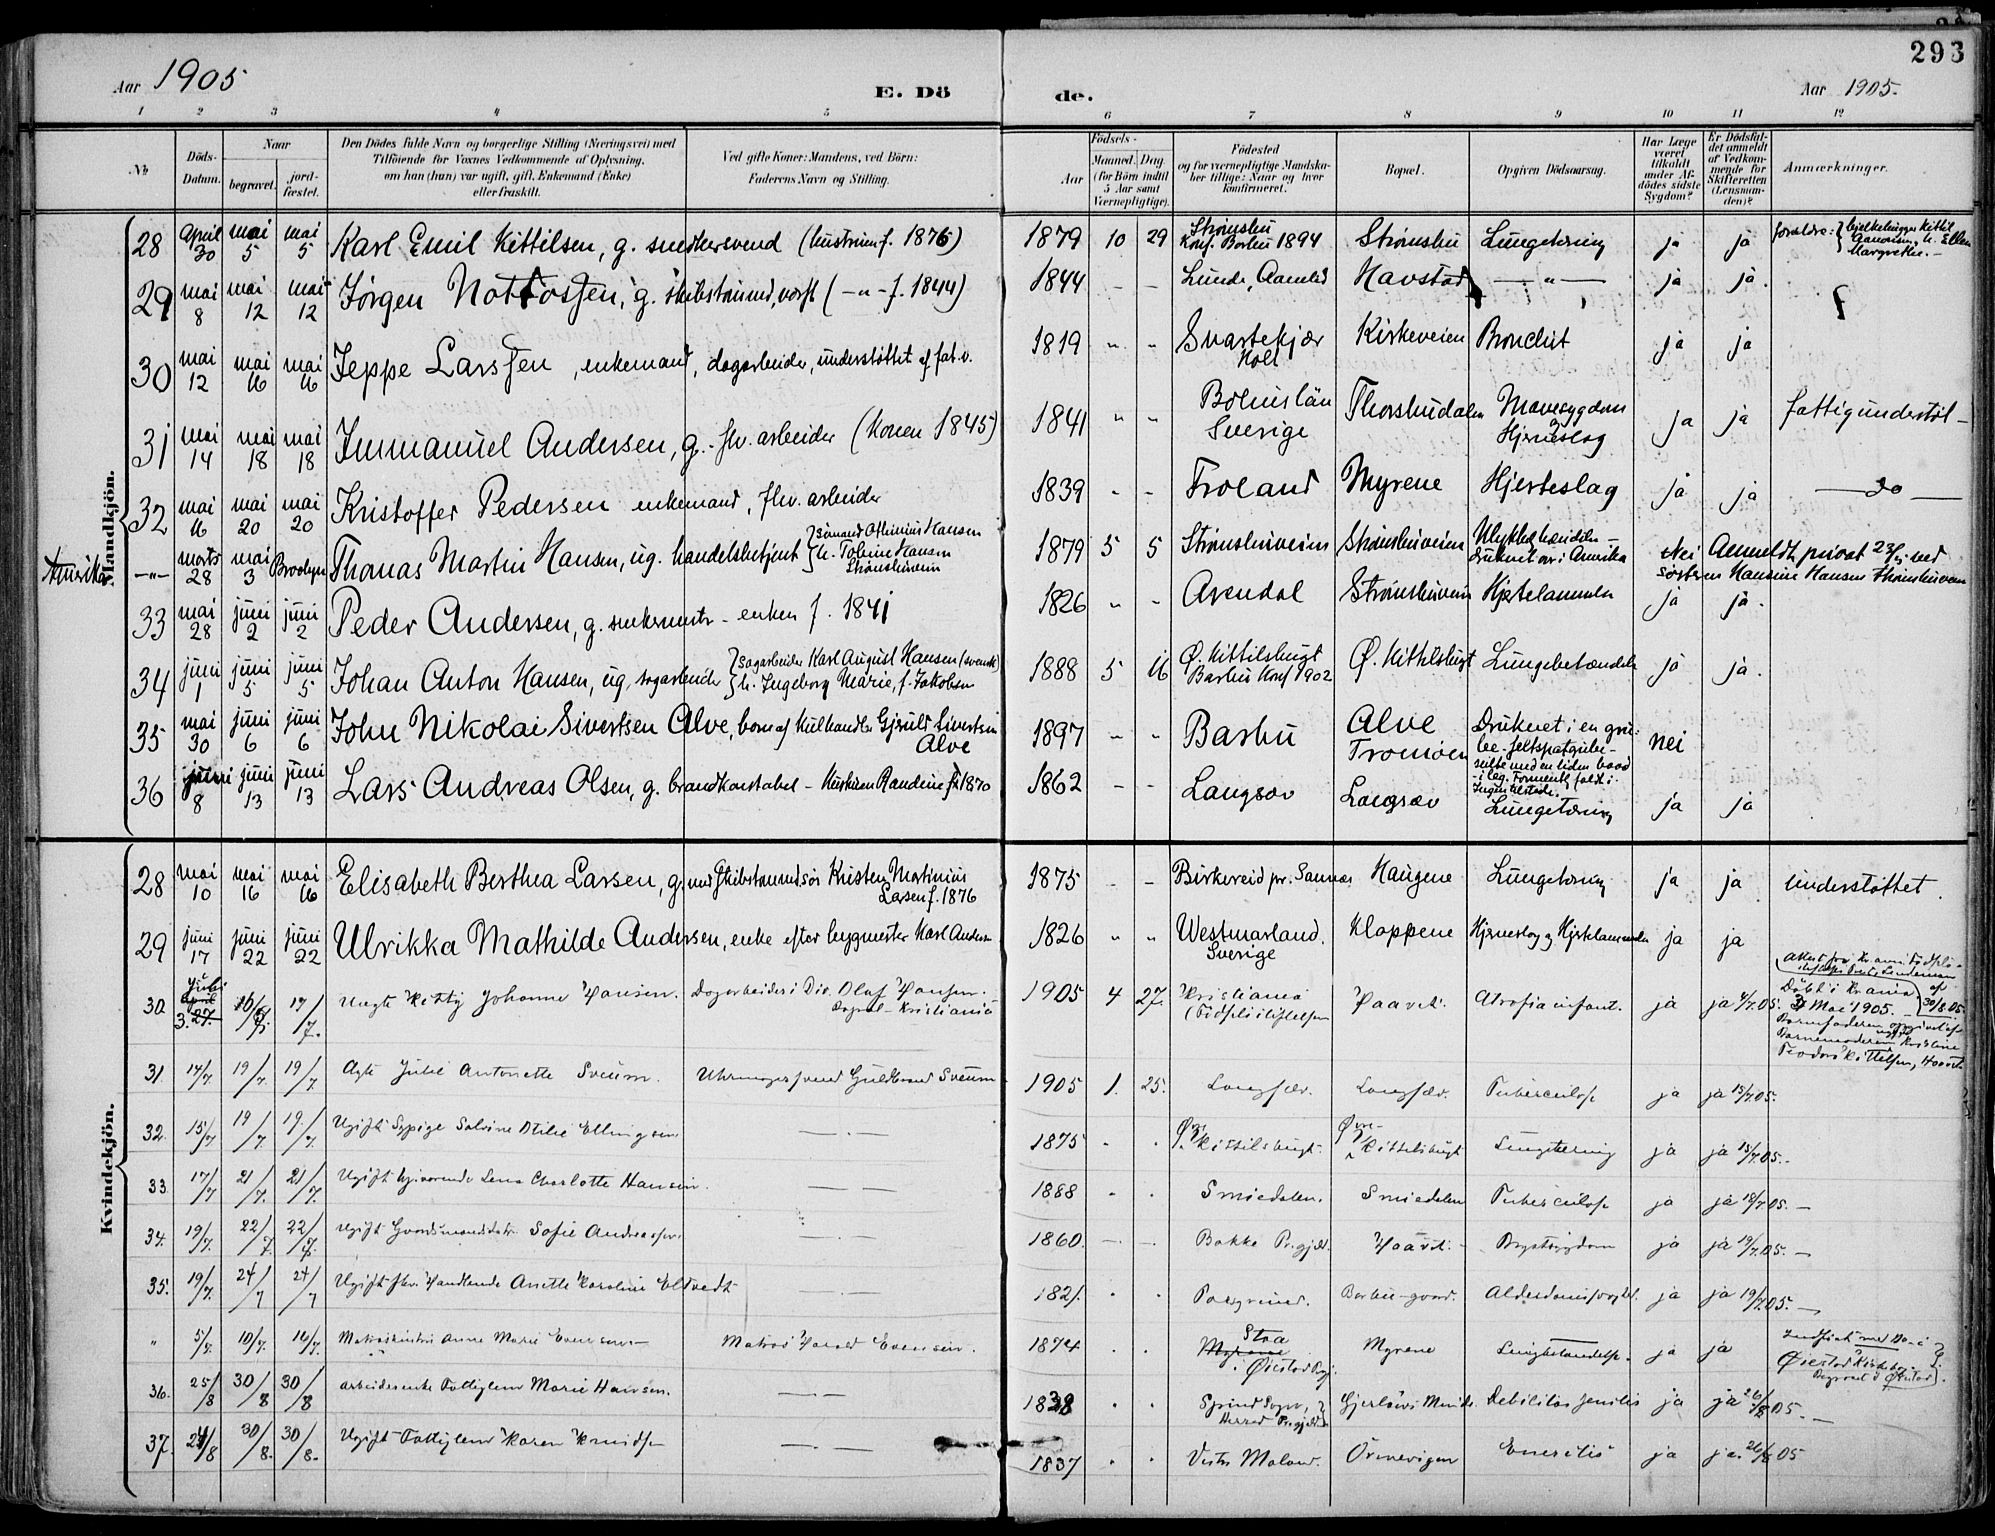 293
Aar 1905
E. Dö
de.
Aar 1905.
1 2 3 4 5 6 7 8 9 10 11 12
No
Döds-Datum.
Naar
begravet.
jordfæstet.
Den Dödes fulde Navn og borgerlige Stilling (Næringsvei) med
Tilföiende for Voxnes Vedkommende af Oplysning,
om han (hun) var ugift, gift, Enkemand (Enke)
eller fraskilt.
Ved gifte Koner: Mandens, ved Börn:
Faderens Navn og Stilling.
Födsels-
Aar
Maaned. Dag.
(for Börn indtil
5 Aar samt
Værnepligtige).
Födested
og for værnepligtige Mandska-
ber tillige: Naar og hvor
konfirmeret.
Bopæl.
Opgiven Dödsaarsag.
Har Læge
været
tilkaldt
under Af-
dödes sidste
Sygdom?
Er Dödsfal-
det anmeldt
af Vedkom-
mende for
Skifteretten
(Lensman-
den)?
Anmærkninger.
Mandkjön.
28 April 30 mai 5 mai 5 Karl Emil Kittilsen, g. snedkersvend (hustru f. 1876) 1879 10 29 Strømsbu Konf. Barbu 1894 Strømsbu Lungetæring ja ja forældre: Kittil Aanonsen, h. Ellen Margrethe. -
29 mai 8 mai 12 mai 12 Jørgen Nottossen, g. skibstømmd, værft ( -"- f. 1844) 1844 - - Lunde, Aamlid Havstad -"- ja ja.
30 mai 12 mai 16 mai 16 Jeppe Larssen, enkemand, dagarbeider, understøttet af fat.v. 1819 " " Svartekjær Holt Kirkeveien Bronchit ja ja
31 mai 14 mai 18 mai 18 Immanuel Andersen, g. - flv. arbeider (Konen 1845) 1841 " " Bohuslän Sverige Thorsbudalen Mavesygdom og Hjerneslag ja ja fattigunderstøt -
32 mai 16 mai 20 mai 20 Kristoffer Pedersen enkemand, flv. arbeider 1839 - - Froland Myrene Hjerteslag ja ja - do -
Amerika -"- marts 28 mai 3 Brooklyn Thomas Martin Hansen, ug. handelsbetjent sømand Hansen h. Tobine Hansen Strømsbuveien 1879 5 5 Strømsbuveien Strømsbuveien Ulykkeshændelse - druknet i Amerika Nei Anmeldt privat 23/5 ved søsteren Hansine Hansen Strømsbuveien
33 mai 28 juni 2 juni 2 Peder Andersen, g. snekermester - enken f. 1841 1826 " - Arendal Strømsbuveien Hjertelammelse ja ja.
34 juni 1 juni 5 juni 5 Johan Anton Hansen, ug, sagarbeider sagarbeider Karl August Hansen (svensk) h. Ingeborg Marie, f. Jakobsen 1888 5 16 Ø. Kittilsbugt Barbu Konf 1902 Ø. Kittilsbugt Lungebetændelse ja ja.
35 mai 30 juni 6 juni 6 John Nikolai Sivertsen Alve, barn af Kulhandler Gjeruld Sivertsen Alve 1897 - - Barbu Alve Tromøen Druknet i en gru- be - feltspatgrube - nei
36 juni 8 juni 13 juni 13 Lars Andreas Olsen, g. brandkonstabel - Hustruen Randine f. 1870 1862 - - Langsæv Langsæv Lungetæring ja ja
Kvindekjön.
28 mai 10 mai 16 mai 16 Elisabeth Berthea Larsen, g. med Skibstømmermand Kristen Martinius Larsen f. 1876 1875 - - Birkereid pr. Sannes Haugene Lungetæring ja ja Understøttet.
29 juni 17 juni 22 juni 22 Ulrikka Mathilde Andersen, enke efter bygmester Karl Andersen 1826 " " Westmarland. Sverige Kloppene Hjerneslag og Hjertelammelse ja ja
30. Juli April 3. 27. 10/7 17/7. Uægte Kitty Johanne Hansen. Dagarbeider i Div. Olaf Hansen. Bopæl - Kristiania 1905 4 27. Kristiania (Fødselsstiftelsen Haavet. Atrofia infant. ja ja 4/7.05. Attest fra Kr.ania Fødsels- stiftelse Døbt i Kr.ania 3 Mai 1905. 30/8.05. Barnefaderen opgivet af Barnemoderen ugift Kristine Teodora Kittelsen, Haavet.
31. 14/7. 19/7. 19/7 Ægte Julie Antonette Sveum. Uhrmagersvend Guldbrand Sveum 1905 1. 25. Langsæv. Langsæv. Tuberculose ja ja 15/7.05.
32. 15/7 19/7. 19/7. Ugift Sypige Salvine Otilie Ellingsen - . - 1875 . . Øvre Kittilsbugt. Øvre Kittilsbugt Lungetæring ja ja 15/7.05. -
33. 17/7 21/7. 21/7. Ugift hjemværende Lena Charlotte Hansen. - . - 1888 . . Smiedalen. Smiedalen Tuberculose ja ja 18/7.05. -
34. 19/7. 22/7. 22/7. Ugift Gaardmandsdatr. Sofie Andreassen. - . - 1860. - - Bakke Prgjæld. Haavet. Brystsygdom ja ja 19/7.05. -
35. 19/7. 24/7 24/7 Ugift flv. Handlende Anette Karoline Eltvedt - . - 1821. . . Porsgrund. Barbu-gaard. Alderdomssvaghed. ja ja 19/7.05. -
" 5/7. 10/7. 10/7. Matroshustru Anne Marie Evensen - Matros Harald Evensen. 1874 . . Stoa Myrene i Øiestad Prgj. Myrene Lungebetændelse. ja ja Indført med No - i Øiestad Kirkebog. Begravet i Øiestad.
36. 25/8 30/8 30/8 Arbeiderenke Fattiglem Marie Hansen. - . - 1838 . . Spind Sogn, Herred Prgjæld. Gjerløvs Minde. Debilitas senilis ja ja 26/8 05. -
37. 24/8 30/8. 30/8. Ugift Fattiglem Karen Knudsen - . - 1837 . . Vestre Moland. Ørnevigen ja ja. 26/8 05